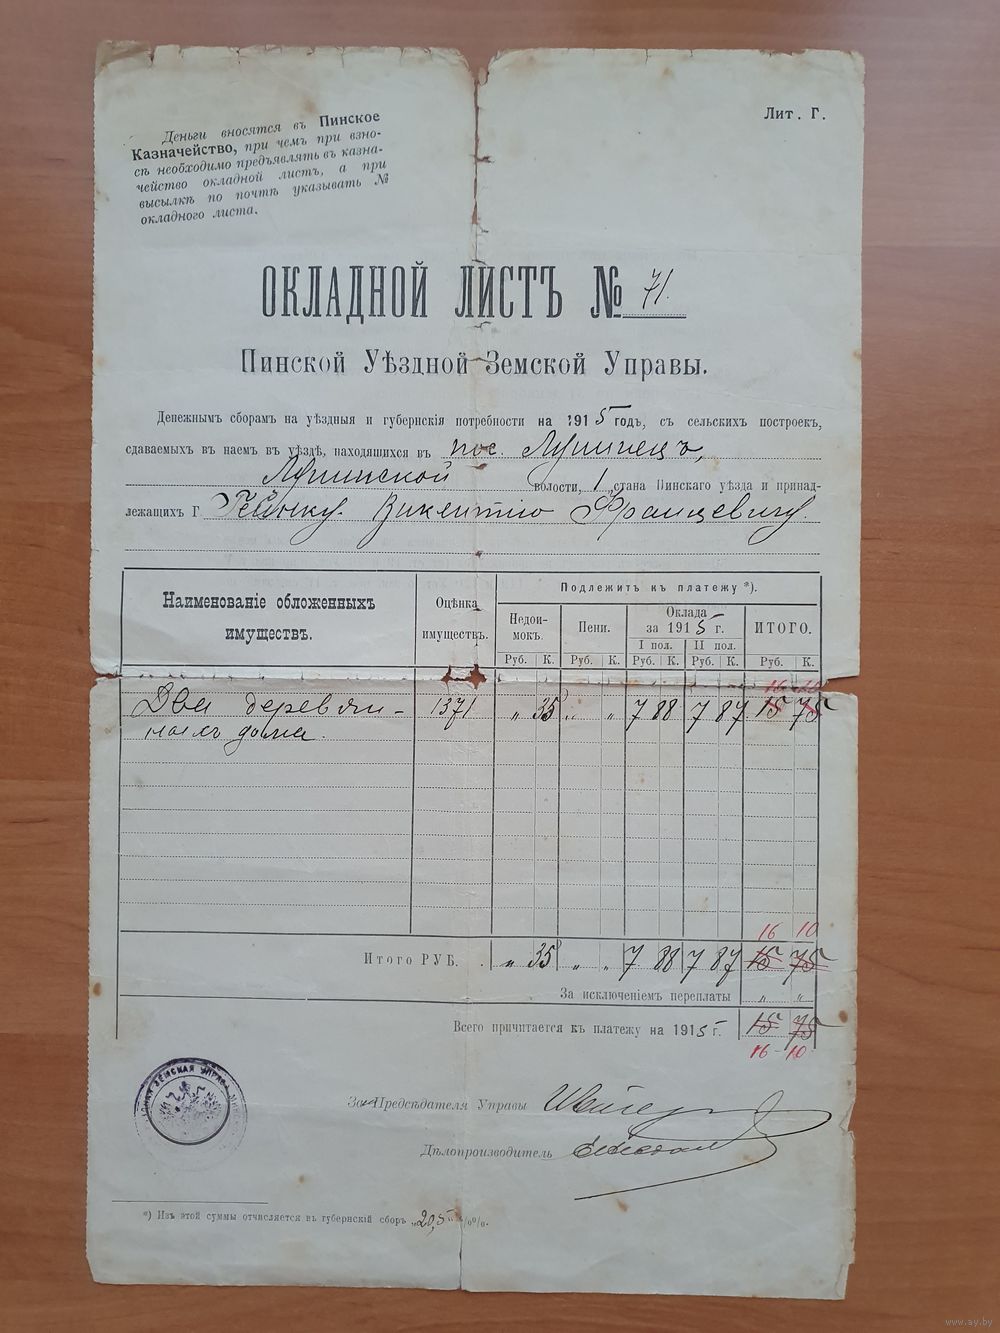 Деньги вносятся въ Пинское
Казначейство, при чемъ при взно-
сѣ необходимо предъявлять въ казна-
чейство окладной листъ, а при
высылкѣ по почтѣ указывать №
окладного листа.
Лит. Г.
ОКЛАДНОЙ ЛИСТЪ № 71.
Пинской Уѣздной Земской Управы.
Денежнымъ сборамъ на уѣздныя и губернскія потребности на 1915 годъ, съ сельскихъ построек,
сдаваемыхъ въ наемъ въ уѣздѣ, находящихся въ пос. Лунинецъ,
Лунинской волости, 1 стана Пинскаго уѣзда и принад-
лежащихъ Г Викентію Францевичу.
Наименованіе обложенныхъ
имуществъ.
Оцѣнка
имуществъ.
Подлежитъ къ платежу *).
Недои-
мокъ.
Пени.
Оклада
за 1915 г.
I пол. II пол.
ИТОГО.
Руб. К. Руб. К. Руб. К. Руб. К. Руб. К.
16 10
Два деревян- 1371 „ 35 „ „ 7 88 7 87 15 75
ныхъ дома.
16 10
Итого РУБ. „ 35 „ „ 7 88 7 87 15 75
За исключеніемъ переплаты „ „
Всего причитается къ платежу на 1915 г. 15 75
16-10
ЗЕМСКАЯ УПРАВА
За Предсѣдателя Управы
Дѣлопроизводитель
*) Изъ этой суммы отчисляется въ губернскій сборъ „20,5" %%.
www.ay.by